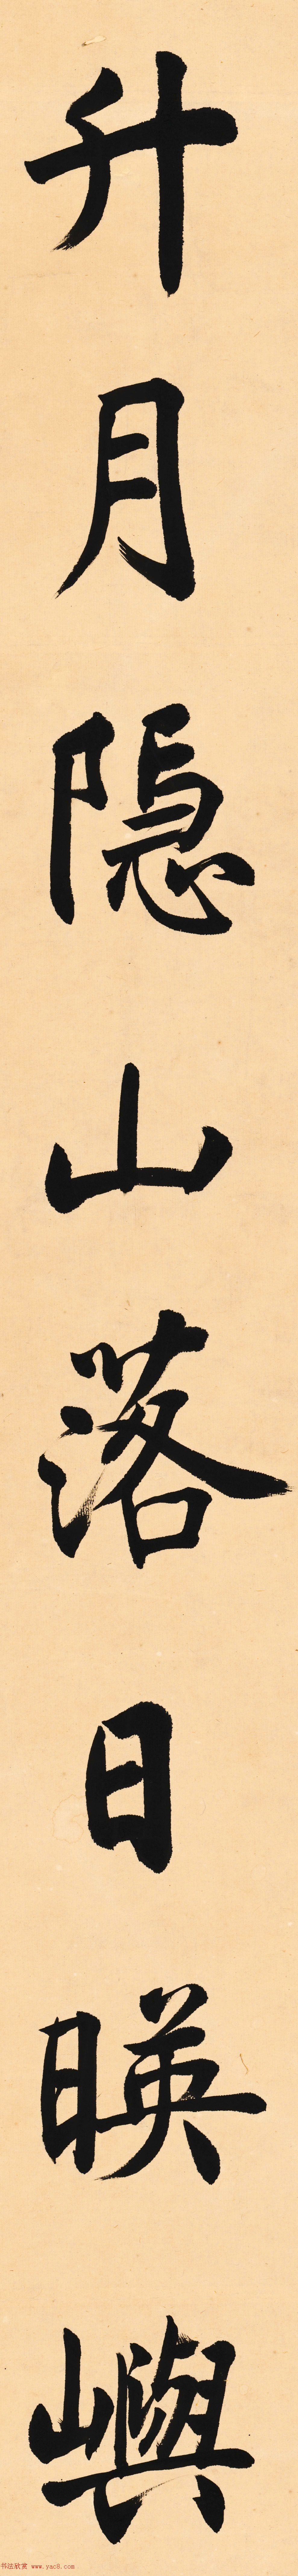 升月隐山落日暎嶼
书法欣赏 www.yac8.com